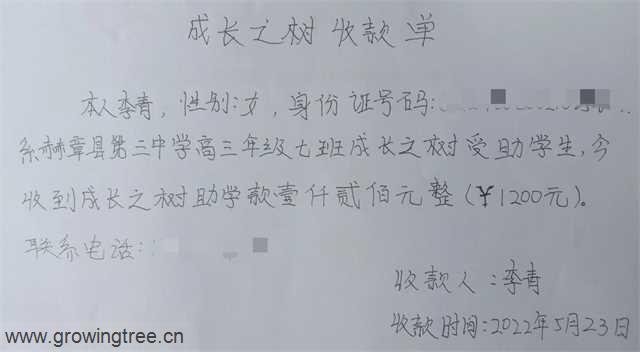 成长之树收款单
本人李青，性别：女，身份证号码：
系赫章县第三中学高三年级七班成长之树受助学生，今
收到成长之树助学款壹仟贰佰元整（￥1200元）。
联系电话：
收款人：李青
收款时间：2022年5月23日
www.growingtree.cn